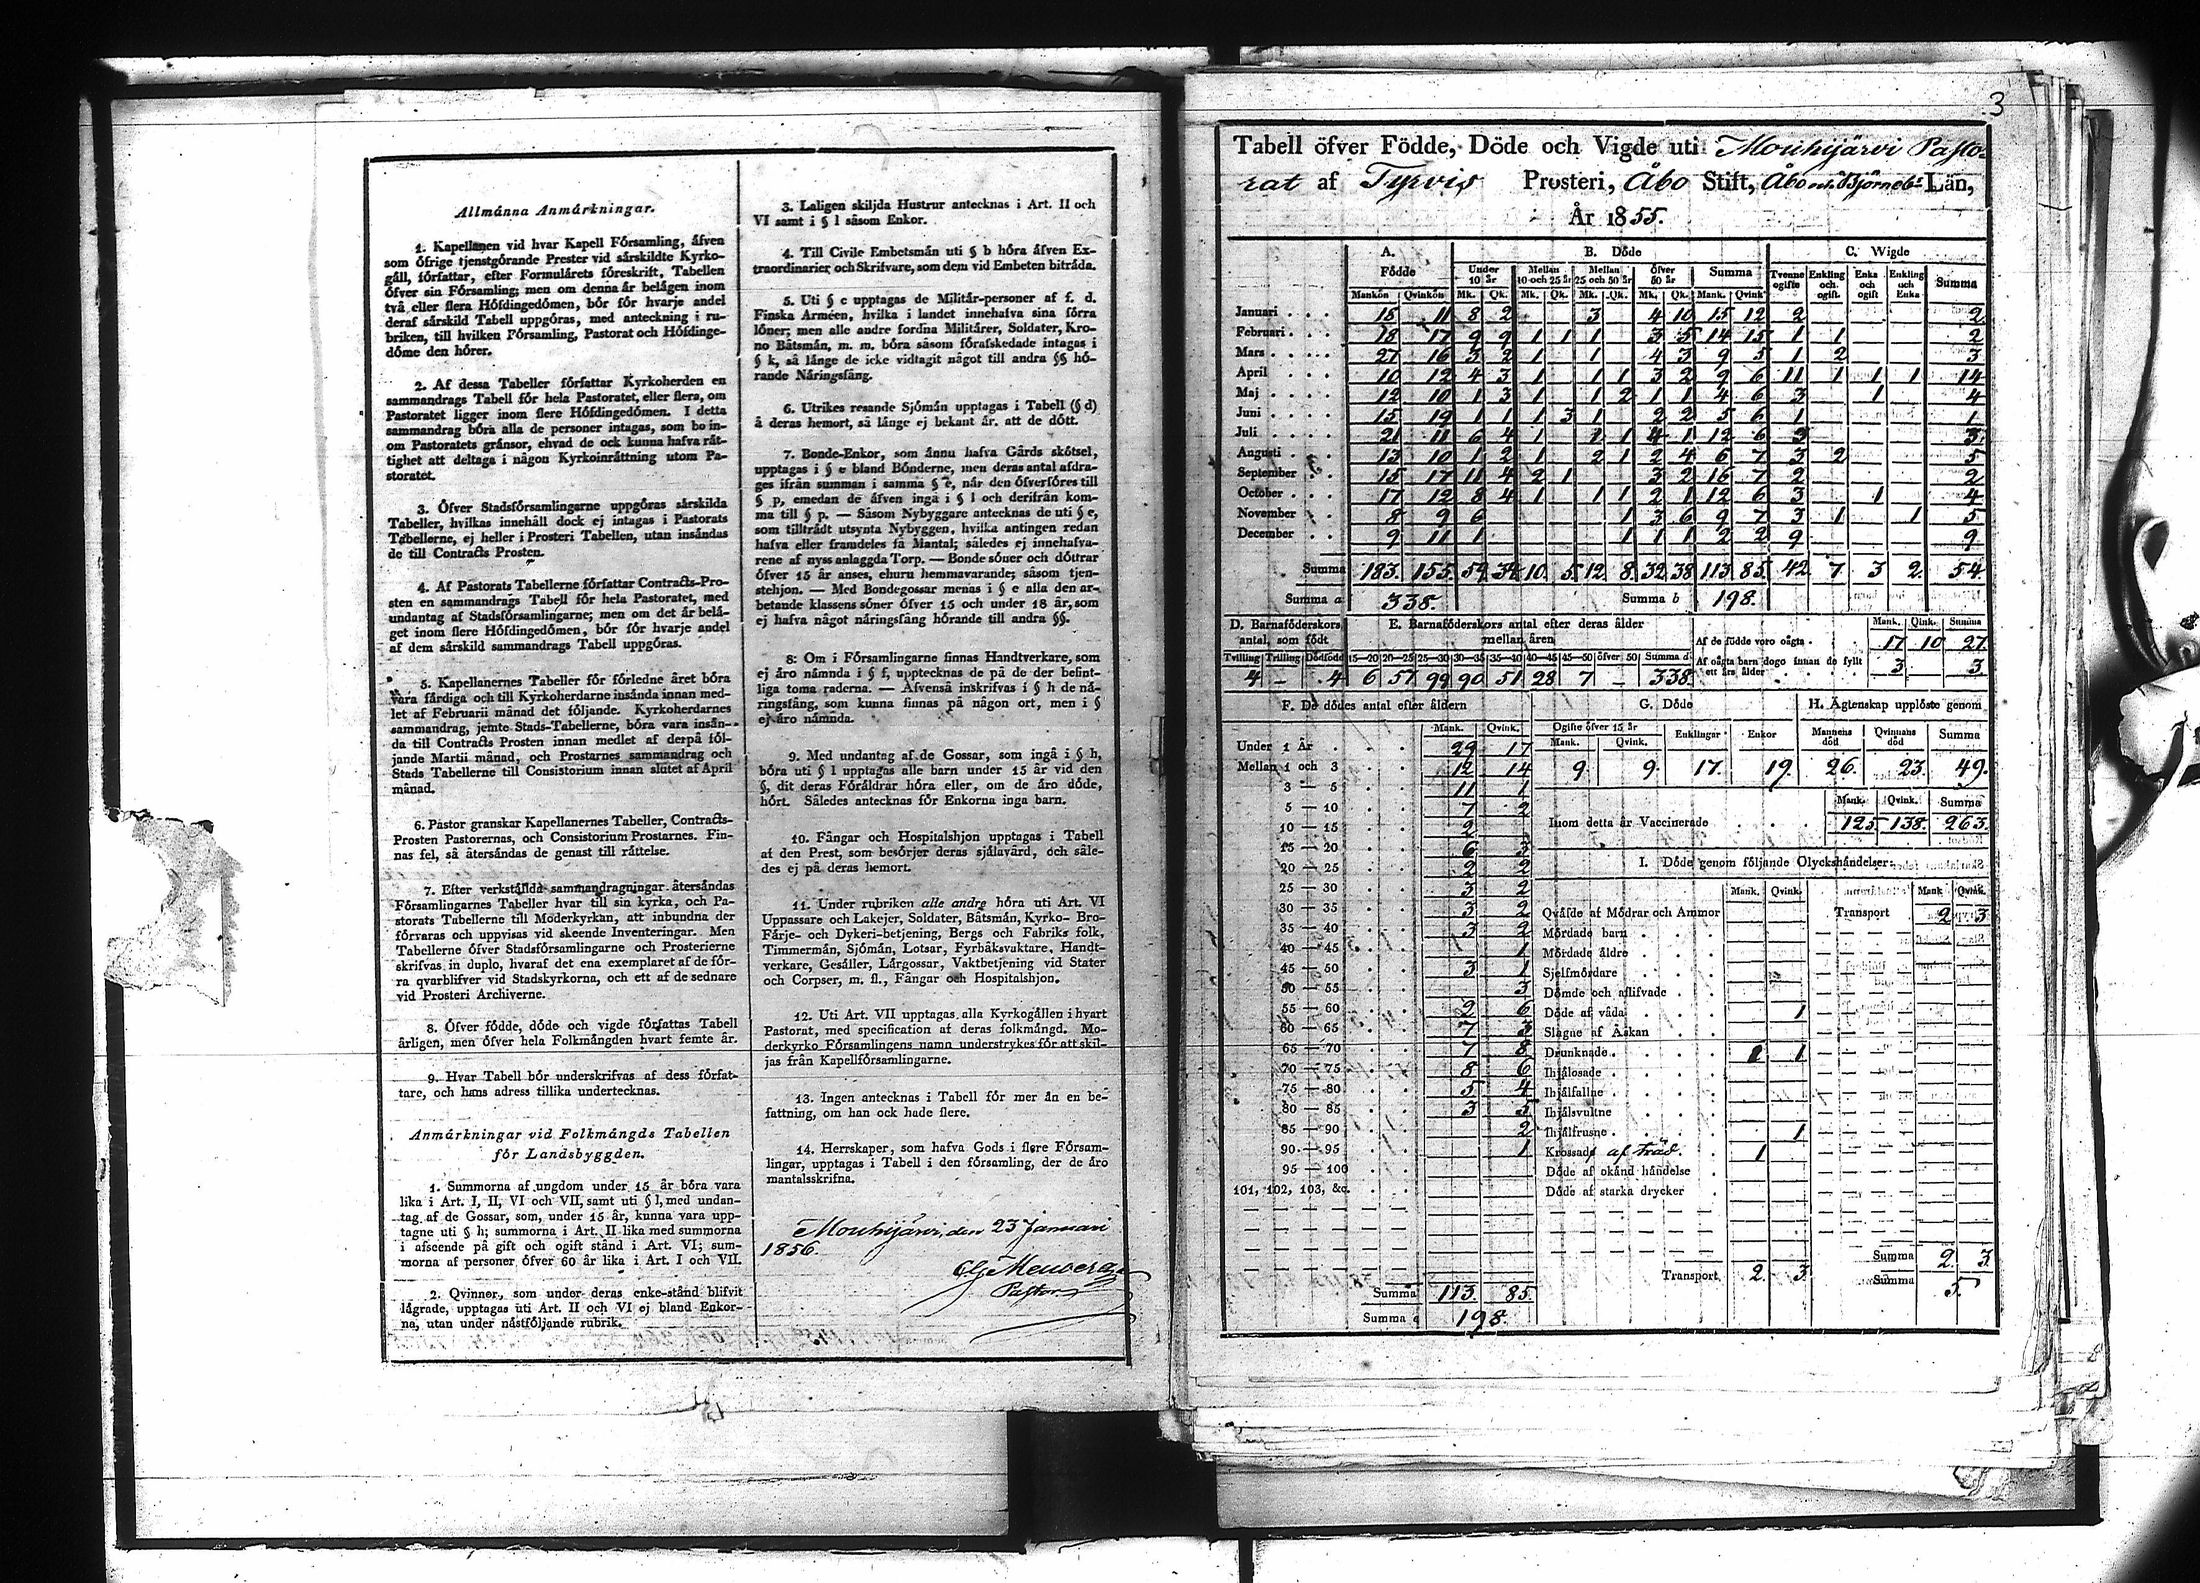 Allmånna Anmårkningar.
1. Kapellanen vid hvar Kapell Fórsamling, åfven
som ófrige tjenstgórande Prester vid sårskildte Kyrko-
gåll, fórfattar, efter Formulårets fóreskrift, Tabellen
ófver sin Fórsamling; men om denna år belågen inom
två eller flera Hófdingedómen, bór fór hvarje andel
deraf sårskild Tabell uppgóras, med anteckning i ru-
briken, till hvilken Fórsamling, Pastorat och Hófdinge-
dóme den hórer.
2. Af dessa Tabeller fórfattar Kyrkoherden en
sammandrags Tabell fór hela Pastoratet, eller flera, om
Pastoratet ligger inom flere Hófdingedómen. I detta
sammandrag bóra alla de personer intagas, som bo in-
om Pastoratets grånsor, ehvad de ock kunna hafva råt-
tighet att deltaga i någon Kyrkoinråttning utom Pa-
storatet.
3. Ófver Stadsfórsamlingarne uppgóras sårskilda
Tabeller, hvilkas innehåll dock ej intages i Pastorats
Tabellerne, ej heller i Prosteri Tabellen, utan insåndas
de till Contracts Prosten.
4. Af Pastorats Tabellerne fórfattar Contracts-Pro-
sten en sammandrags Tabell fór hela Pastoratet, med
undantag af Stadsfórsamlingarne; men om det år belå-
get inom flere Hófdingedómen, bór fór hvarje andel
af dem sårskild sammandrags Tabell uppgóras.
5. Kapellanernes Tabeller fór fórledne året bóra
vara fårdiga och till Kyrkoherdarne insånda innan med-
let af Februarii månad det fóljande. Kyrkoherdarnes
sammandrag, jemte Stads-Tabellerne, bóra vara insån-
da till Contracts Prosten innan medlet af derpå fól-
jande Martii månad, och Prostarnes sammandrag och
Stads Tabellerne till Consistorium innan slutet af April
månad.
6. Pastor granskar Kapellanernes Tabeller, Contracts-
Prosten Pastorernas, och Consistorium Prostarnes. Fin-
nas fel, så återsåndas de genast till råttelse.
7. Efter verkstålldå sammandragningar återsåndas
Fórsamlingarnes Tabeller hvar till sin kyrka, och Pa-
storats Tabellerne till Móderkyrkan, att inbundna der
fórvaras och uppvisas vid skeende Inventeringar. Men
Tabellerne ófver Stadsfórsamlingarne och Prosterierne
skrifvas in duplo, hvaraf det ena exemplaret af de fór-
ra qvarblifver vid Stadskyrkorna, och ett af de sednare
vid Prosteri Archiverne.
8. Ófver fódde, dóde och vigde fórfattas Tabell
årligen, men ófver hela Folkmångden hvart femte år.
9. Hvar Tabell bór underskrifvas af dess fórfat-
tare, och hans adress tillika undertecknas.
Anmårkningar vid Folkmångds Tabellen
fór Landsbyggden.
1. Summorna af ungdom under 15 år bóra vara
lika i Art. I, II, VI och VII, samt uti § l, med undan-
tag af de Gossar, som, under 15 år, kunna vara upp-
tagne uti § h; summorna i Art. II lika med summorna
i afseende på gift och ogift stånd i Art. VI; sum-
morna af personer ófver 60 år lika i Art. I och VII.
2. Qvinnor, som under deras enke-stånd blifvit
lågrade, upptagas uti Art. II och VI ej bland Enkor-
na, utan under nåstfóljande rubrik.
3. Laligen skiljda Hustrur antecknas i Art. II och
VI samt i § l såsom Enkor.
4. Till Civile Embetsmån uti § b hóra åfven Ex-
traordinarier och Skrifvare, som dem vid Embeten bitråda.
5. Uti § c upptagas de Militår-personer af f. d.
Finska Arméen, hvilka i landet innehafva sina fórra
lóner; men alle andre fordna Militårer, Soldater, Kro-
no Båtsmån, m. m. bóra såsom fórafskedade intagas i
§ k, så långe de icke vidtagit något till andra §§ hó-
rande Nåringsfång.
6. Utrikes resande Sjómån upptagas i Tabell (§ d)
å deras hemort, så långe ej bekant år, att de dótt.
7. Bonde-Enkor, som ånnu hafva Gårds skótsel,
upptagas i § e bland Bónderne, men deras antal afdra-
ges ifrån summan i samma § e, når den ófverfóres till
§ p, emedan de åfven ingå i § l och derifrån kom-
ma till § p. — Såsom Nybyggare antecknas de uti § e,
som tilltrådt utsynta Nybyggen, hvilka antingen redan
hafva eller framdeles få Mantal; således ej innehafva-
rene af nyss anlaggda Torp. — Bonde sóner och dóttrar
ófver 15 år anses, ehuru hemmavarande, såsom tjen-
stehjon. — Med Bondegossar menas i § e alla den ar-
betande klassens sóner ófver 15 och under 18 år, som
ej hafva något nåringsfång hórande till andra §§.
8: Om i Fórsamlingarne finnas Handtverkare, som
ej åro nåmnda i § f, upptecknas de på de der befint-
liga toma raderna. — Åfvenså inskrifvas i § h de nå-
ringsfång, som kunna finnas på någon ort, men i §
ej åro nåmnda.
9. Med undantag af de Gossar, som ingå i § h,
bóra uti § l upptagas alle barn under 15 år vid den
§, dit deras Fóråldrar hóra eller, om de åro dóde,
hórt. Således antecknas fór Enkorna inga barn.
10. Fångar och Hospitalshjon upptagas i Tabell
af den Prest, som besórjer deras sjålavård, och såle-
des ej på deras hemort.
11. Under rubriken alle andre hóra uti Art. VI
Uppassare och Lakejer, Soldater, Båtsmån, Kyrko- Bro-
Fårje- och Dykeri-betjening, Bergs och Fabriks folk,
Timmermån, Sjómån, Lotsar, Fyrbåksvaktare, Handt-
verkare, Gesåller, Lårgossar, Vaktbetjening vid Stater
och Corpser, m. fl., Fångar och Hospitalshjon.
12. Uti Art. VII upptagas alla Kyrkogållen i hvart
Pastorat, med specification af deras folkmångd. Mo-
derkyrko Fórsamlingens namn understrykes fór att skil-
jas från Kapellfórsamlingarne.
13. Ingen antecknas i Tabell fór mer ån en be-
fattning, om han ock hade flere.
14. Herrskaper, som hafva Gods i flere Fórsam-
lingar, upptagas i Tabell i den fórsamling, der de åro
mantalsskrifna.
Mouhijärvi, den 23 Januari
1856.
Pastor
3
Tabell öfver Födde, Döde och Vigde uti Mouhijärvi Pasto-
rat af Tyrvis Prosteri, Åbo Stift, Åbo och Björneb:s Län,
År 1855.
A. B. Dóde C. Wigde
Fódde Under 10 år Mellan 10 och 25 år Mellan 25 och 50 år Ófver 50 år Summa Tvenne ogifte Enkling och ogift. Enka och ogift Enkling och Enka Summa
Mankón Qvinkón Mk. Qk. Mk. Qk. Mk. Qk. Mk. Qk. Mank. Qvink
Januari 18 11 8 2 3 4 10 15 12 2 2
Februari 18 17 9 9 1 1 1 3 5 14 15 1 1 2
Mars 27 16 3 2 1 1 4 3 9 5 1 2 3
April 10 12 4 3 1 1 1 3 2 9 6 11 1 1 1 14
Maj 12 10 1 3 1 1 2 1 1 4 6 3 1 4
Juni 15 19 1 1 1 3 1 2 2 5 6 1 1
Juli 21 11 6 4 1 1 1 4 1 12 6 3 3
Augusti 13 10 1 2 1 2 1 2 4 6 7 3 2 5
September 15 17 11 4 2 1 3 2 16 7 2 2
October 17 12 8 4 1 1 1 2 1 12 6 3 1 4
November 8 9 6 1 3 6 9 7 3 1 1 5
December 9 11 1 1 1 1 2 2 9 9
Summa 183. 155. 59. 34. 10. 5. 12. 8. 32. 38 113. 85. 42 7 3 2. 54.
Summa a 338. Summa b 198.
D. Barnafóderskors antal, som fódt
E. Barnafóderskors antal efter deras ålder mellan åren
Mank. Qink. Summa
Af de fódde voro oågta 17 10 27.
Tvilling Trilling Dódfódde 15—20 20—25 25—30 30—35 35—40 40—45 45—50 ófver 50 Summa d
Af oågta barn dogo innan de fyllt ett års ålder 3 3.
4 – 4 6 57 99 90 51 28 7 – 338.
F. De dódes antal efter åldern
Mank. Qvink.
Under 1 År 29 17
Mellan 1 och 3 12 14
3 — 5 11 1
5 — 10 7 2
10 — 15 2
15 — 20 6 3
20 — 25 2 2
25 — 30 3 2
30 — 35 3 2
35 — 40 3 2
40 — 45 1
45 — 50 3 1
50 — 55 3
55 — 60 2 6
60 — 65 7 3
65 — 70 7 8
70 — 75 8 6
75 — 80 5 4
80 — 85 3 5
85 — 90 2
90 — 95 1
95 — 100
101, 102, 103, &c.
Summa 113. 85.
Summa 198.
G. Dóde
Ogifte ófver 15 år Enklingar Enkor
Mank. Qvink.
9. 9. 17. 19.
H. Ågtenskap upplóste genom
Mannens dód Qvinnans dód Summa
26. 23. 49.
Mank. Qvink. Summa
Inom detta år Vaccinerade 125 138. 263.
I. Dóde genom fóljande Olyckshåndelser:
Mank. Qvink. Mank Qvink.
Qvåfde af Módrar och Ammor Transport 2 3
Mórdade barn
Mórdade åldre
Sjelfmórdare
Dómde och aflifvade
Dóde af våda 1
Slagne af Åskan
Drunknade 1 1
Ihjålosade
Ihjålfallne
Ihjålsvultne
Ihjålfrusne 1
Krossade af träd. 1
Dóde af okånd håndelse
Dóde af starka drycker
Summa 2. 3.
Transport 2. 3.
Summa 5.